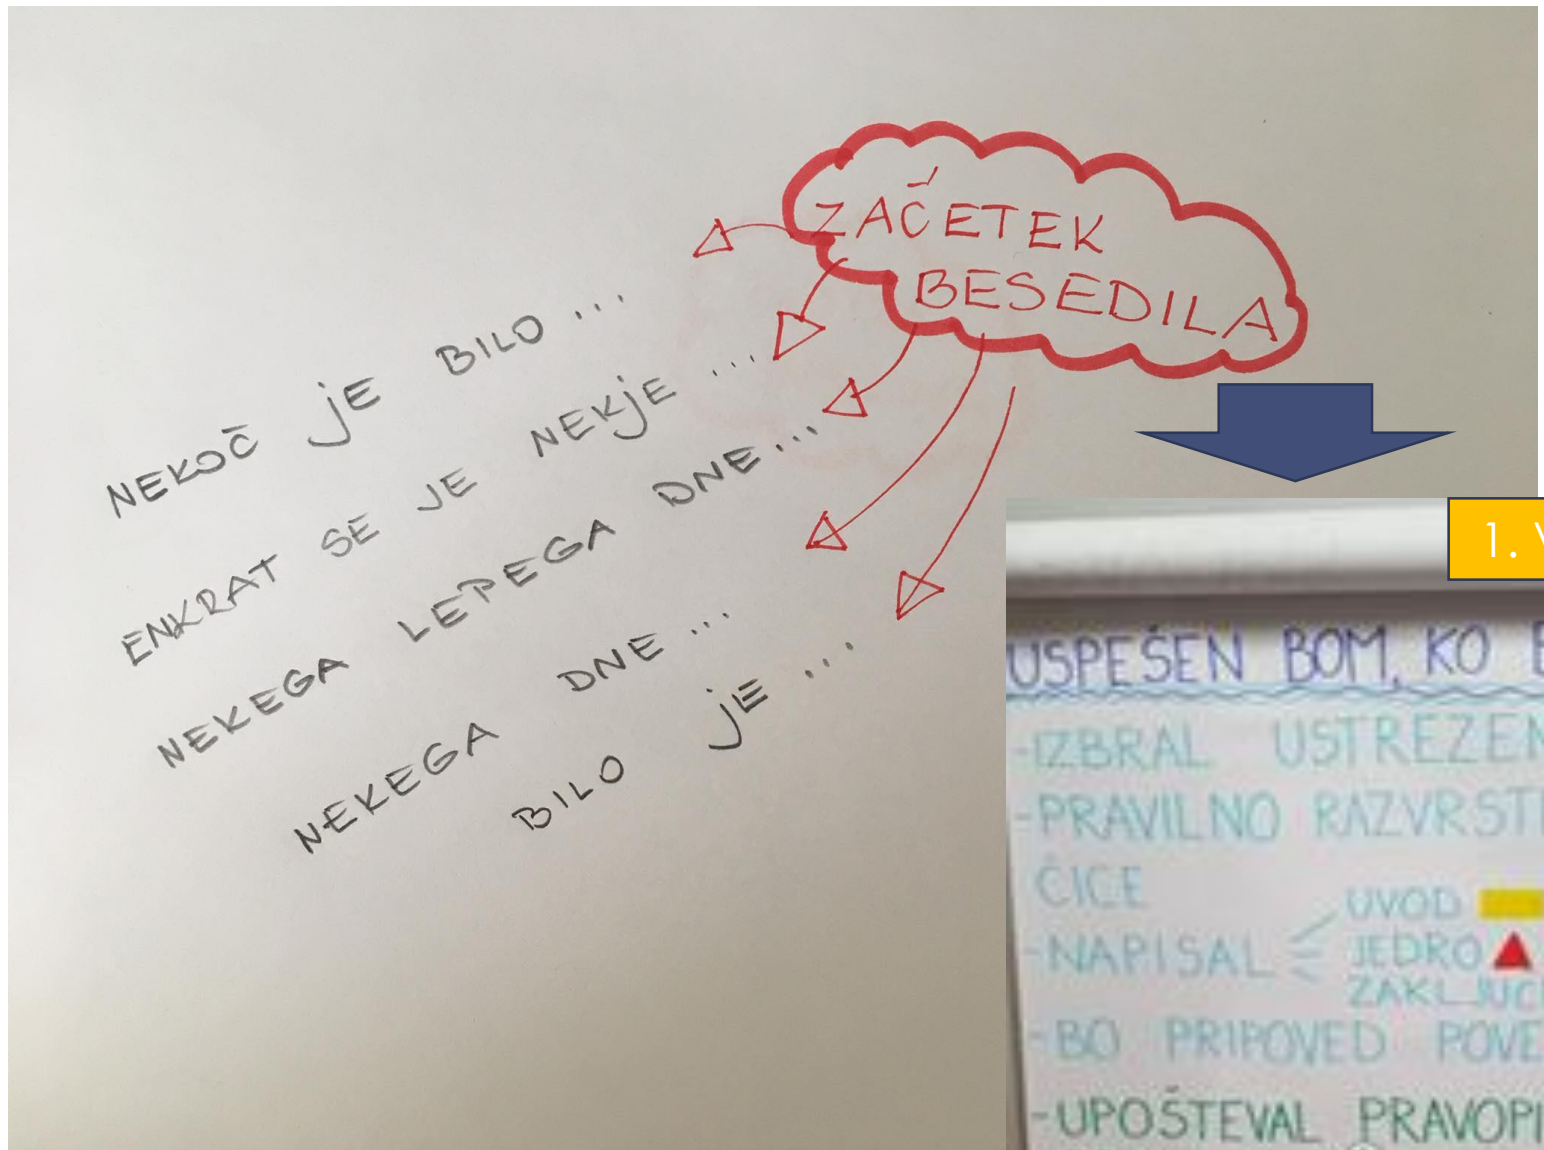 ZAČETEK
BESEDILA
NEKOČ JE BILO ...
ENKRAT SE JE NEKJE ...
NEKEGA LEPEGA DNE...
NEKEGA DNE ...
BILO JE ...
1.
USPEŠEN BOM, KO
-IZBRAL
-PRAVILNO
ČICE
-NAPISAL UVOD
JEDRO
-BO PRIPOVED
-UPOŠTEVAL